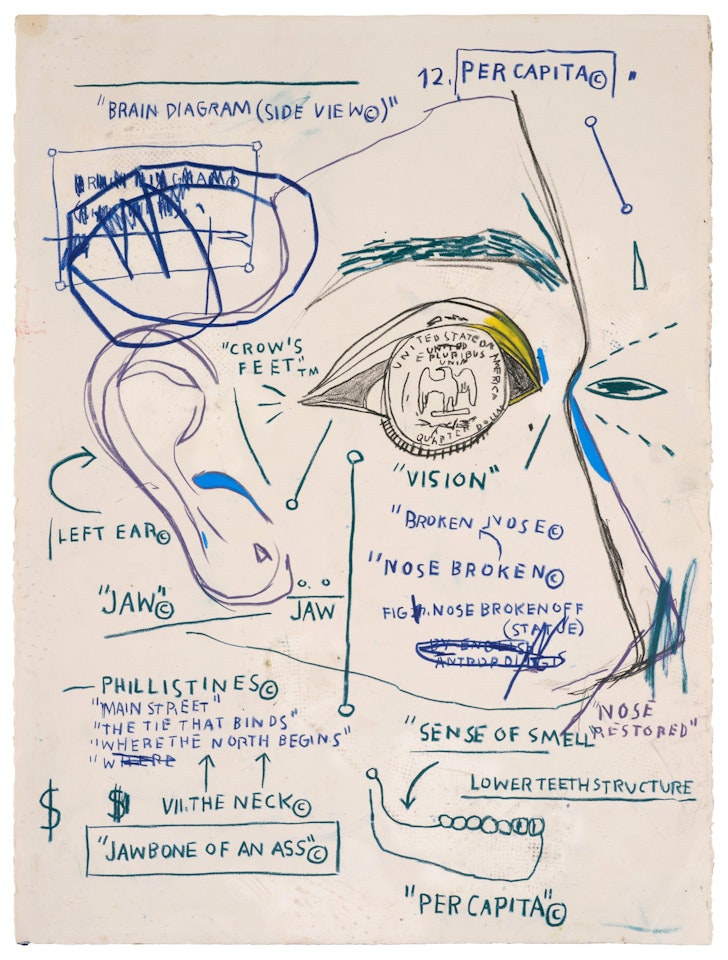 12. PER CAPITA©"
"BRAIN DIAGRAM (SIDE VIEW©)"
"CROW'S
FEET"TM
UNITED STATE OF AMERICA
UNITED
E PLURIBUS
UNIM
QUARTER DOLLAR
"VISION"
"BROKEN NOSE©
"NOSE BROKEN©
LEFT EAR©
"JAW"©
JAW
FIG. NOSE BROKEN OFF
(STATUE)
BY ENGLISH
ANTROPOLOGIS
PHILLISTINES©
"MAIN STREET"
"THE TIE THAT BINDS"
"WHERE THE NORTH BEGINS"
"WHERE
"NOSE
RESTORED"
"SENSE OF SMELL"
LOWER TEETH STRUCTURE
$ $ VII. THE NECK©
"JAWBONE OF AN ASS"©
"PER CAPITA"©